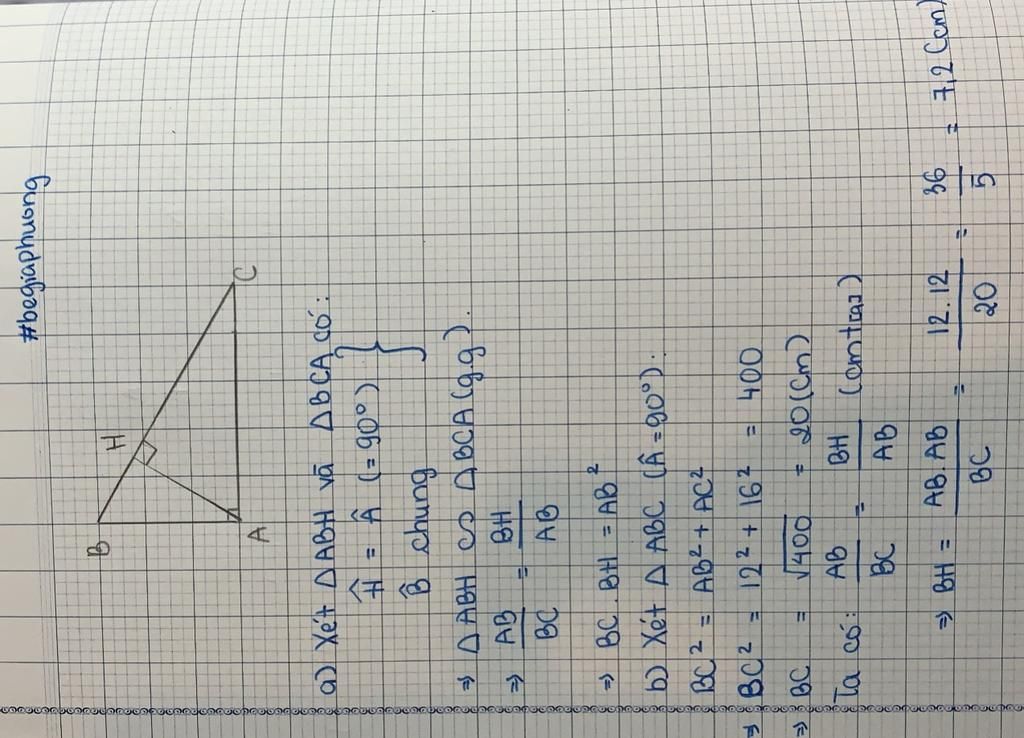 #begiaphuong
B
H
A
C
a) Xét ΔABH và ΔBCA có:
Ĥ = Â (= 90°)
B̂ chung
⇒ ΔABH ∽ ΔBCA (g.g).
⇒ AB/BC = BH/AB
⇒ BC.BH = AB²
b) Xét ΔABC (Â = 90°):
BC² = AB² + AC²
⇒ BC² = 12² + 16² = 400
⇒ BC = √400 = 20 (cm)
Ta có: AB/BC = BH/AB (cmt(a))
⇒ BH = AB.AB/BC = 12.12/20 = 36/5 = 7,2 (cm)